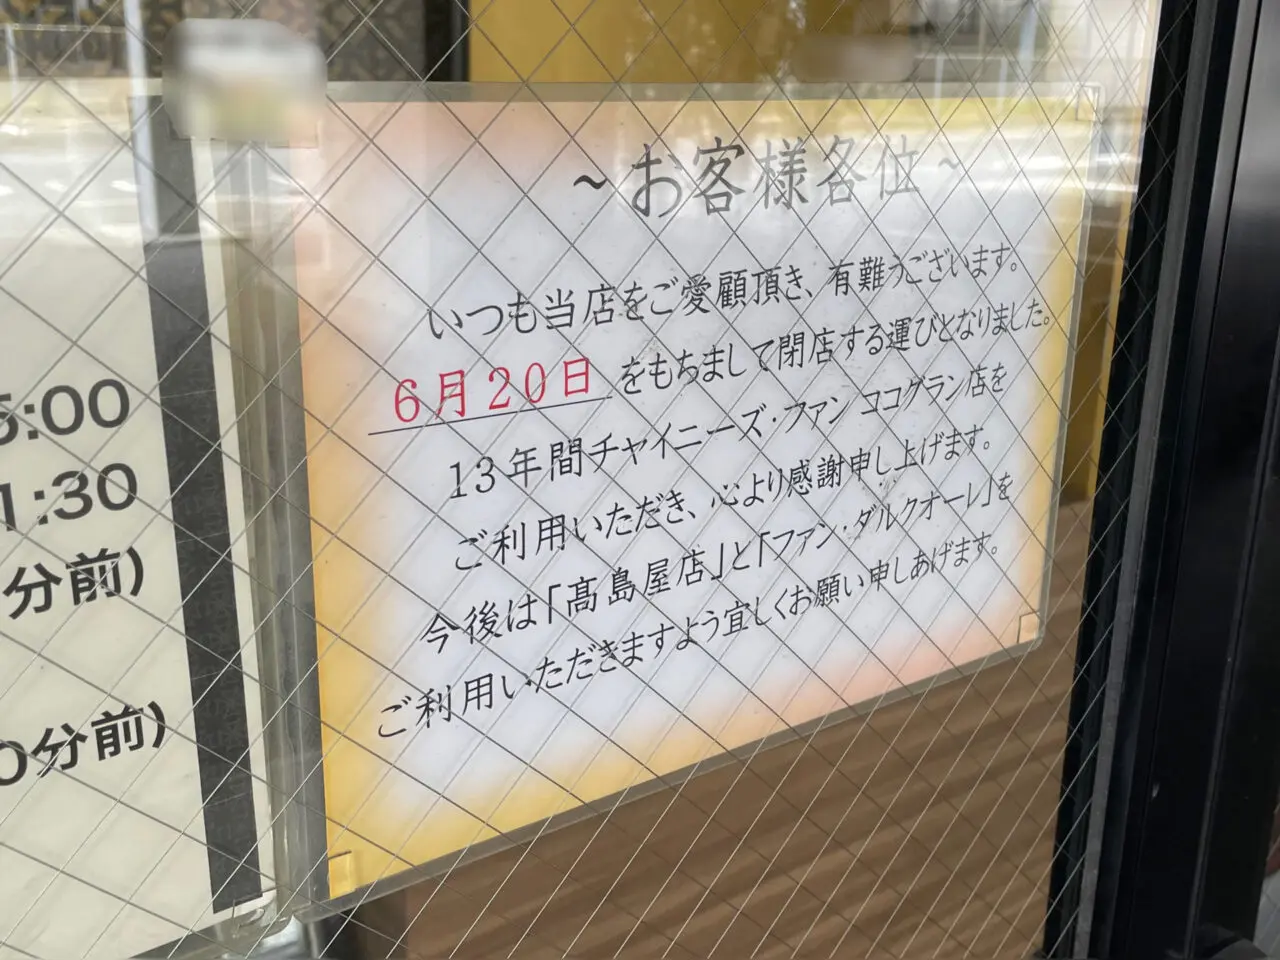 ~お客様各位~
いつも当店をご愛顧頂き、有難うございます。
6月20日をもちまして閉店する運びとなりました。
13年間チャイニーズ・ファン ココグラン店を
ご利用いただき、心より感謝申し上げます。
今後は「髙島屋店」と「ファン・ダルクオーレ」を
ご利用いただきますよう宜しくお願い申しあげます。
5:00
1:30
分前)
0分前)